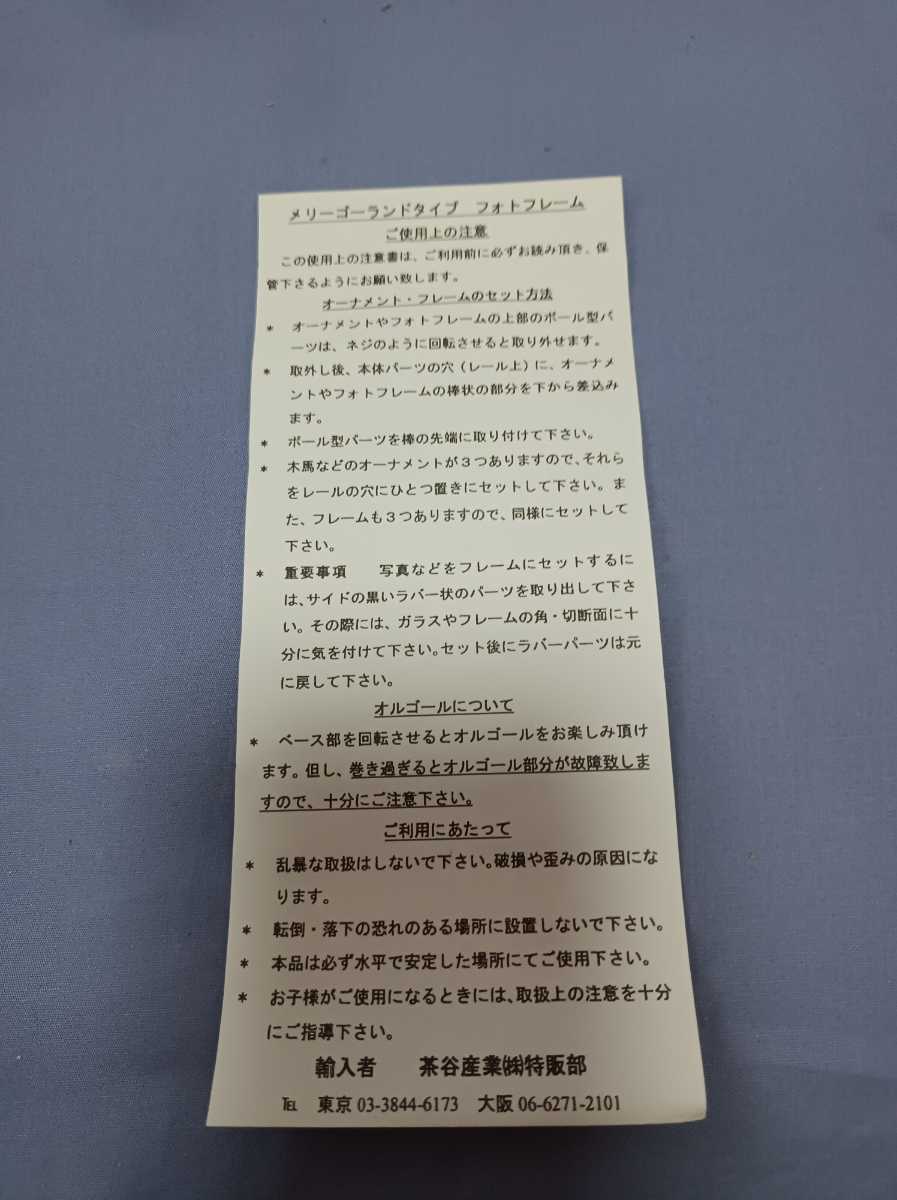 メリーゴーランドタイプ　フォトフレーム
ご使用上の注意
この使用上の注意書は、ご利用前に必ずお読み頂き、保
管下さるようにお願い致します。
オーナメント・フレームのセット方法
* オーナメントやフォトフレームの上部のボール型パ
ーツは、ネジのように回転させると取り外せます。
* 取外し後、本体パーツの穴（レール上）に、オーナメ
ントやフォトフレームの棒状の部分を下から差込み
ます。
* ボール型パーツを棒の先端に取り付けて下さい。
* 木馬などのオーナメントが３つありますので、それら
をレールの穴にひとつ置きにセットして下さい。ま
た、フレームも３つありますので、同様にセットして
下さい。
* 重要事項　　写真などをフレームにセットするに
は、サイドの黒いラバー状のパーツを取り出して下さ
い。その際には、ガラスやフレームの角・切断面に十
分に気を付けて下さい。セット後にラバーパーツは元
に戻して下さい。
オルゴールについて
* ベース部を回転させるとオルゴールをお楽しみ頂け
ます。但し、巻き過ぎるとオルゴール部分が故障致しま
すので、十分にご注意下さい。
ご利用にあたって
* 乱暴な取扱はしないで下さい。破損や歪みの原因にな
ります。
* 転倒・落下の恐れのある場所に設置しないで下さい。
* 本品は必ず水平で安定した場所にてご使用下さい。
* お子様がご使用になるときには、取扱上の注意を十分
にご指導下さい。
輸入者　　茶谷産業㈱特販部
℡　東京 03-3844-6173　大阪 06-6271-2101